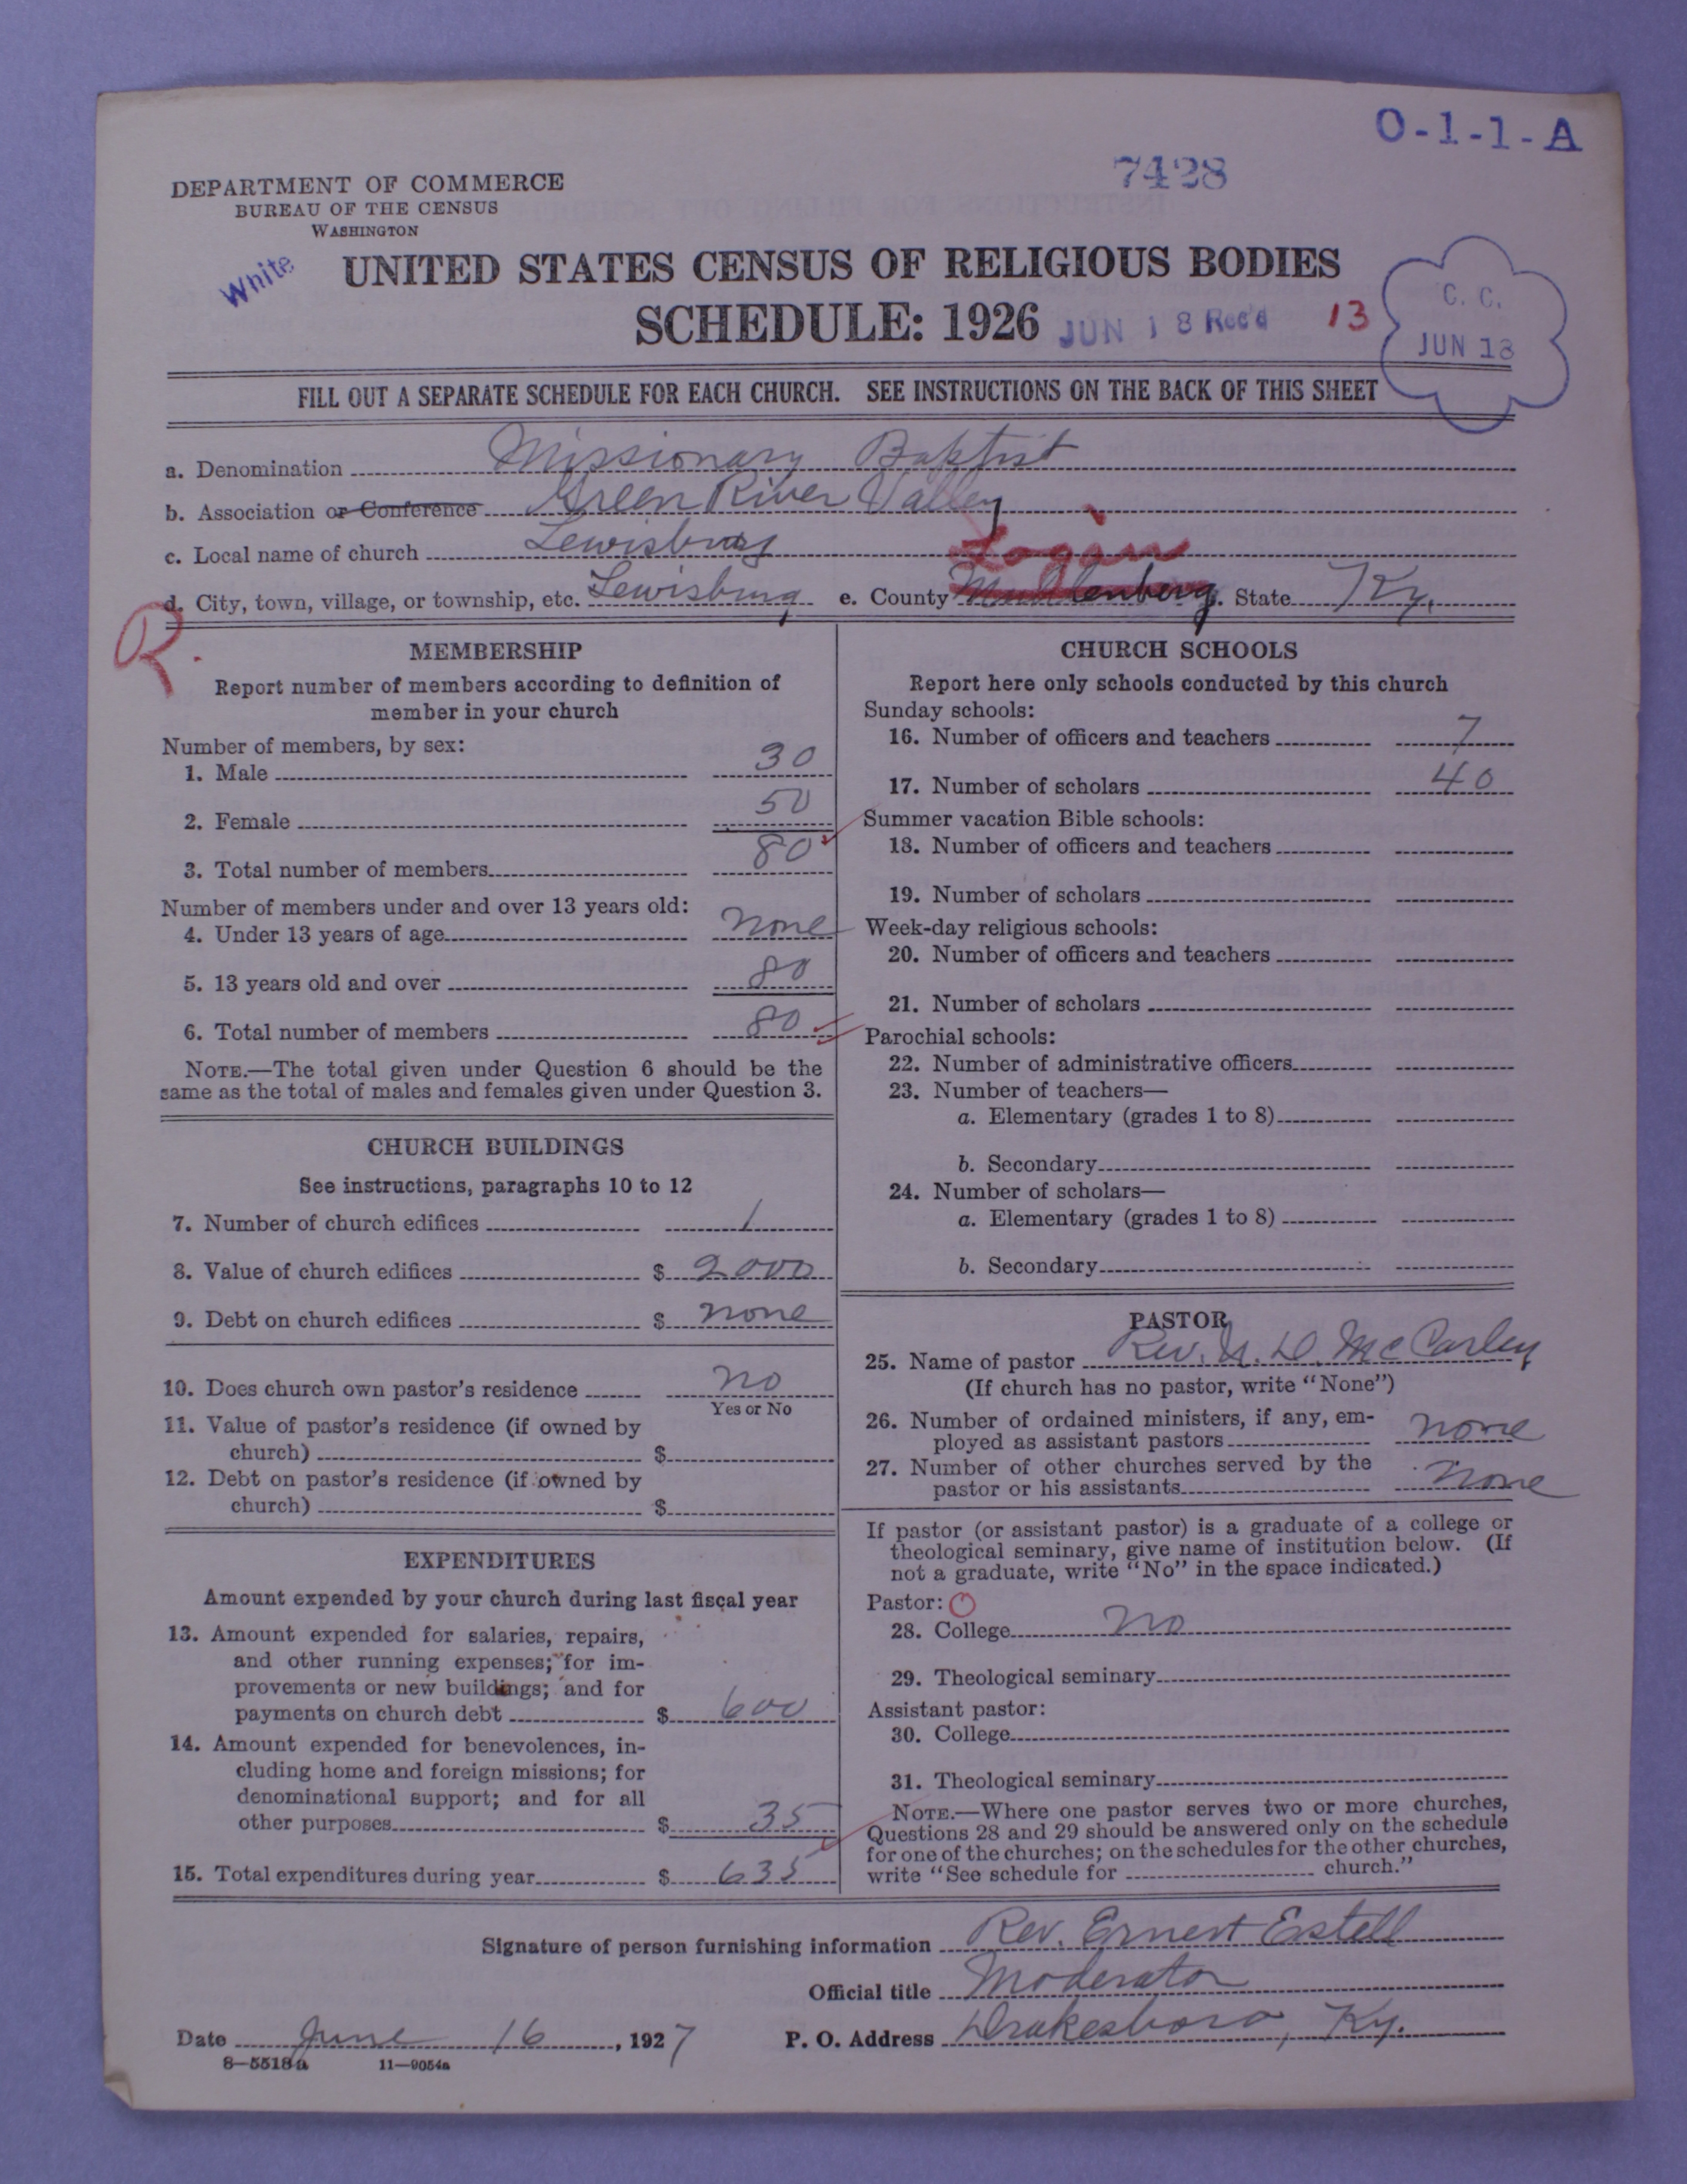 O-1-1-A
7428
DEPARTMENT OF COMMERCE
BUREAU OF THE CENSUS
WASHINGTON
White
UNITED STATES CENSUS OF RELIGIOUS BODIES
SCHEDULE: 1926 JUN 18 Rec'd 13
C. C.
JUN 18
FILL OUT A SEPARATE SCHEDULE FOR EACH CHURCH. SEE INSTRUCTIONS ON THE BACK OF THIS SHEET
a. Denomination Missionary Baptist
b. Association or Conference Green River Valley
c. Local name of church Lewisburg
Logan
d. City, town, village, or township, etc. Lewisburg, e. County Muhlenberg. State Ky.
R.
MEMBERSHIP
Report number of members according to definition of
member in your church
Number of members, by sex:
1. Male 30
2. Female 50
3. Total number of members 80
Number of members under and over 13 years old:
4. Under 13 years of age none
5. 13 years old and over 80
6. Total number of members 80
NOTE.—The total given under Question 6 should be the
same as the total of males and females given under Question 3.
CHURCH BUILDINGS
See instructions, paragraphs 10 to 12
7. Number of church edifices 1
8. Value of church edifices $ 2000
9. Debt on church edifices $ none
10. Does church own pastor's residence no
Yes or No
11. Value of pastor's residence (if owned by
church) $
12. Debt on pastor's residence (if owned by
church) $
EXPENDITURES
Amount expended by your church during last fiscal year
13. Amount expended for salaries, repairs,
and other running expenses; for im-
provements or new buildings; and for
payments on church debt $ 600
14. Amount expended for benevolences, in-
cluding home and foreign missions; for
denominational support; and for all
other purposes $ 35
15. Total expenditures during year $ 635
CHURCH SCHOOLS
Report here only schools conducted by this church
Sunday schools:
16. Number of officers and teachers 7
17. Number of scholars 40
Summer vacation Bible schools:
18. Number of officers and teachers
19. Number of scholars
Week-day religious schools:
20. Number of officers and teachers
21. Number of scholars
Parochial schools:
22. Number of administrative officers
23. Number of teachers—
a. Elementary (grades 1 to 8)
b. Secondary
24. Number of scholars—
a. Elementary (grades 1 to 8)
b. Secondary
PASTOR
25. Name of pastor Rev. D. McCarley
(If church has no pastor, write "None")
26. Number of ordained ministers, if any, em-
ployed as assistant pastors none
27. Number of other churches served by the
pastor or his assistants none
If pastor (or assistant pastor) is a graduate of a college or
theological seminary, give name of institution below. (If
not a graduate, write "No" in the space indicated.)
Pastor: O
28. College no
29. Theological seminary
Assistant pastor:
30. College
31. Theological seminary
NOTE.—Where one pastor serves two or more churches,
Questions 28 and 29 should be answered only on the schedule
for one of the churches; on the schedules for the other churches,
write "See schedule for church."
Signature of person furnishing information Rev. Ernest Estell
Official title Moderator
Date June 16, 1927 P. O. Address Drakesboro, Ky.
8—5518a 11—9054a